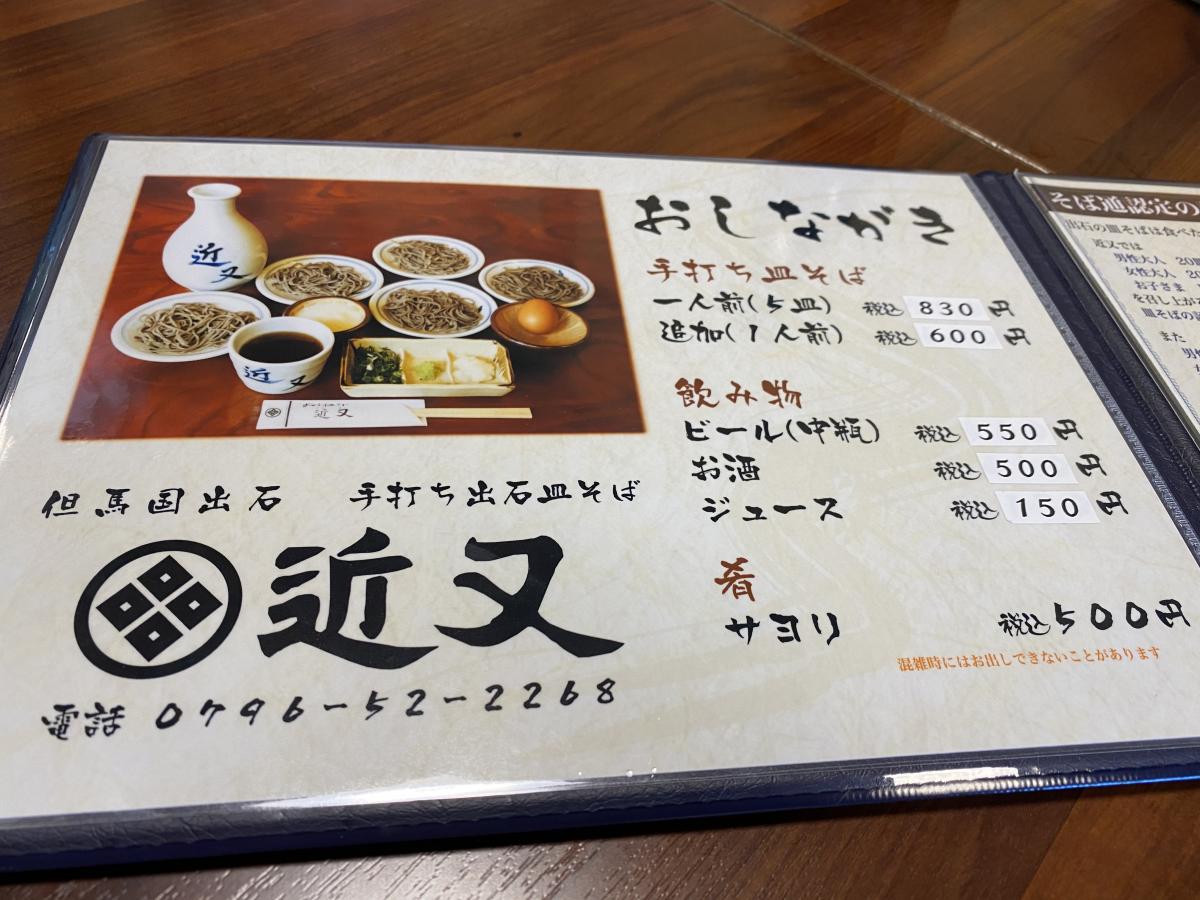 近又
近又
近又
但馬国出石 手打ち出石皿そば
近又
電話 0796-52-2268
おしながき
手打ち皿そば
一人前(5皿) 税込 830 円
追加(1人前) 税込 600 円
飲み物
ビール(中瓶) 税込 550 円
お酒 税込 500 円
ジュース 税込 150 円
肴
サヨリ 税込500円
混雑時にはお出しできないことがあります
そば通認定の
出石の皿そばは食べた
近又では
男性大人 20皿
女性大人
お子さま
を召し上が
皿そばの
また